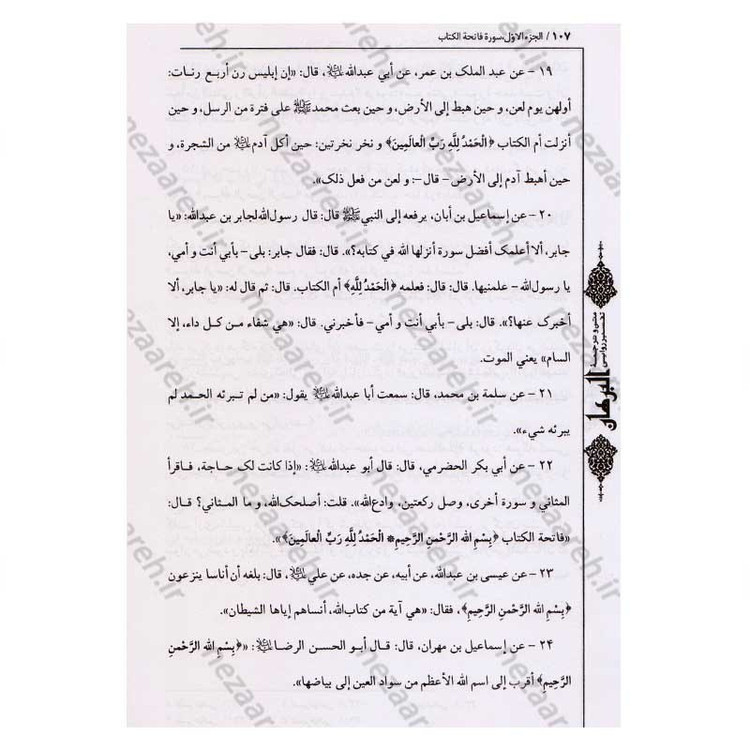 ۱۰۷ / الجزء الاوّل،سورة فاتحة الکتاب
۱۹ – عن عبد الملک بن عمر، عن أبي عبدالله، قال: «إن إبلیس رن أربع رنات:
أولهن یوم لعن، و حین هبط إلی الأرض، و حین بعث محمدﷺ علی فترة من الرسل، و حین
أنزلت أم الکتاب ﴿الْحَمْدُ لِلَّهِ رَبِّ الْعالَمِینَ﴾ و نخر نخرتین: حین أکل آدم من الشجرة، و
حین أهبط آدم إلی الأرض – قال –: و لعن من فعل ذلک».
۲۰ – عن إسماعیل بن أبان، یرفعه إلی النبيﷺ قال: قال رسول‌الله‌لجابر بن عبدالله: «یا
جابر، ألا أعلمک أفضل سورة أنزلها الله في کتابه؟». قال: فقال جابر: بلی – بأبي أنت و أمي،
یا رسول‌الله – علمنیها. قال: قال: فعلمه ﴿الْحَمْدُ لِلَّهِ﴾ أم الکتاب. قال: ثم قال له: «یا جابر، ألا
أخبرک عنها؟». قال: بلی – بأبي أنت و أمي – فأخبرني. قال: «هي شفاء من کل داء، إلا
السام» یعني الموت.
۲۱ – عن سلمة بن محمد، قال: سمعت أبا عبدالله یقول: «من لم تبرئه الحمد لم
یبرئه شيء».
۲۲ – عن أبي بکر الحضرمي، قال: قال أبو عبدالله: «إذا کانت لک حاجة، فاقرأ
المثاني و سورة أخری، وصل رکعتین، وادع‌الله». قلت: أصلحک‌الله، و ما المثاني؟ قال:
«فاتحة الکتاب ﴿بِسْمِ الله الرَّحْمنِ الرَّحِیمِ* الْحَمْدُ لِلَّهِ رَبِّ الْعالَمِینَ﴾».
۲۳ – عن عیسی بن عبدالله، عن أبیه، عن جده، عن علي، قال: بلغه أن أناسا ینزعون
﴿بِسْمِ الله الرَّحْمنِ الرَّحِیمِ﴾، فقال: «هي آیة من کتاب‌الله، أنساهم إیاها الشیطان».
۲۴ – عن إسماعیل بن مهران، قال: قال أبو الحسن الرضا: «﴿بِسْمِ الله الرَّحْمنِ
الرَّحِیمِ﴾ أقرب إلی اسم الله الأعظم من سواد العین إلی بیاضها».
متن و ترجمهٔ
تفسیر روایی
البرهان
nezaareh.ir